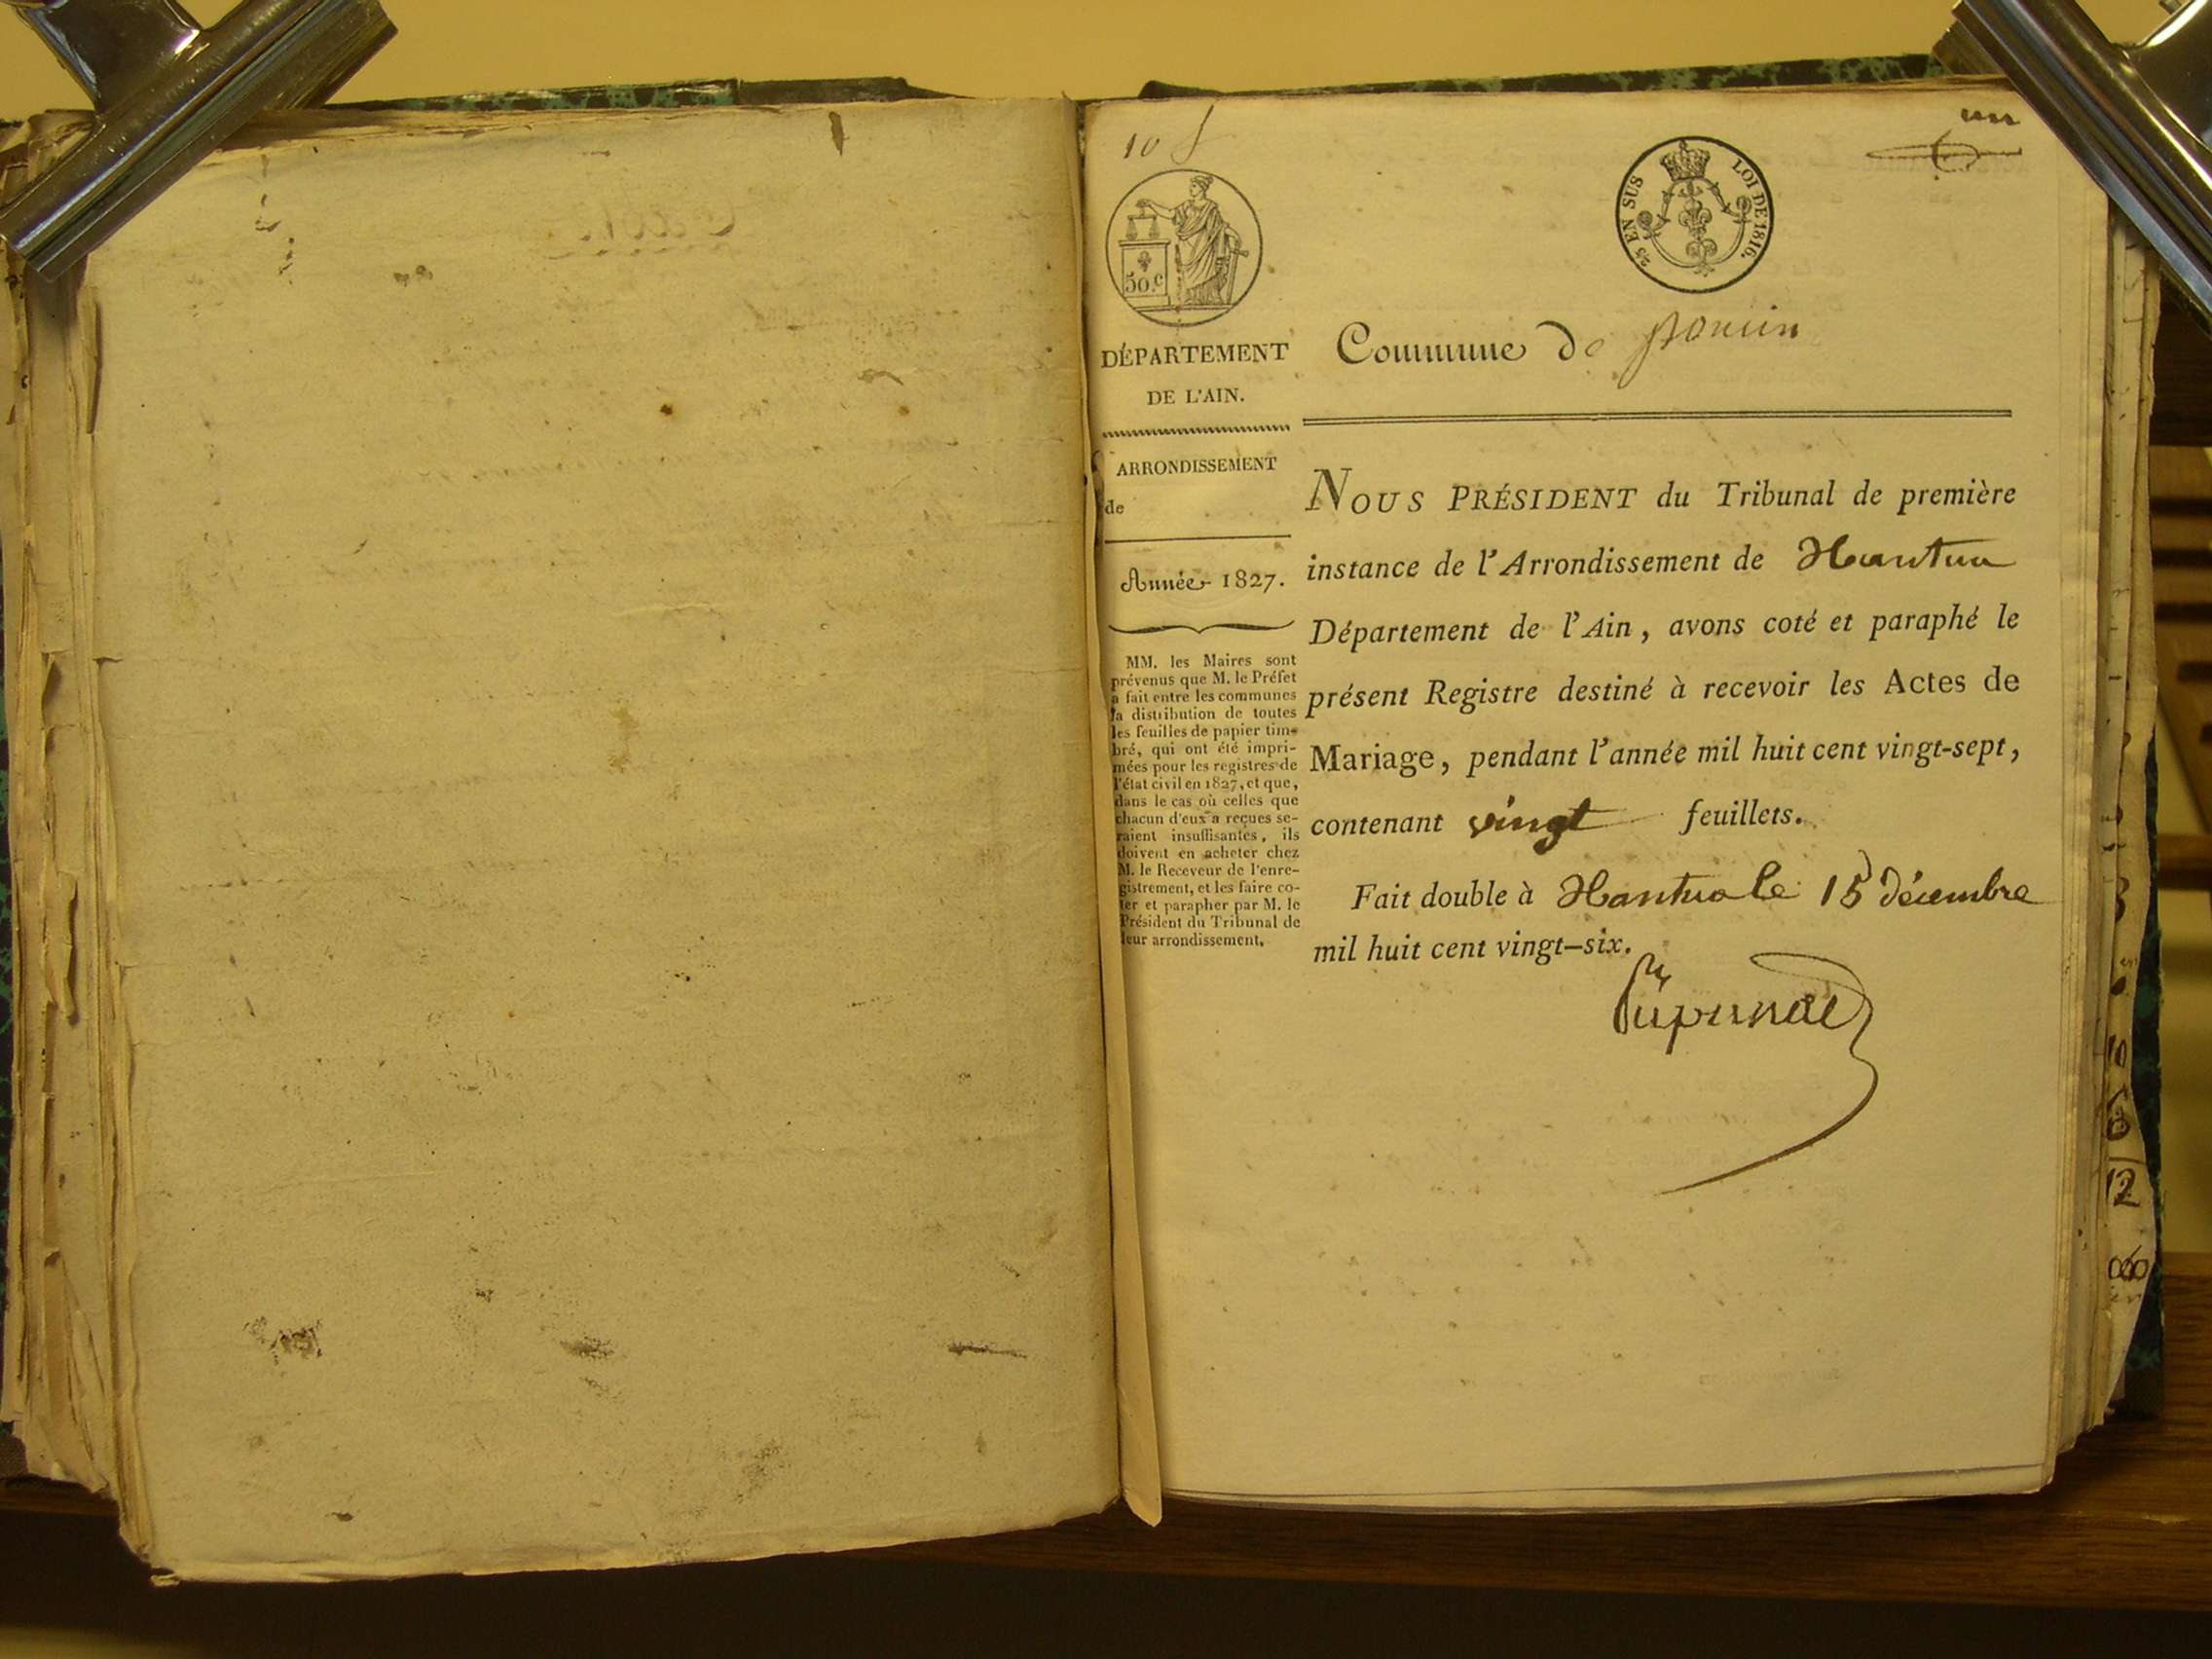 un
10
50.c
2/5 EN SUS LOI DE 1816.
DÉPARTEMENT
DE L'AIN.
ARRONDISSEMENT
de
Année 1827.
MM. les Maires sont
prévenus que M. le Préfet
a fait entre les communes
la distribution de toutes
les feuilles de papier tim-
bré, qui ont été impri-
mées pour les registres de
l'état civil en 1827, et que,
dans le cas où celles que
chacun d'eux a reçues se-
raient insuffisantes, ils
doivent en acheter chez
M. le Receveur de l'enre-
gistrement, et les faire co-
ter et parapher par M. le
Président du Tribunal de
leur arrondissement.
Commune de poncin
NOUS PRÉSIDENT du Tribunal de première
instance de l'Arrondissement de Nantua
Département de l'Ain, avons coté et paraphé le
présent Registre destiné à recevoir les Actes de
Mariage, pendant l'année mil huit cent vingt-sept,
contenant vingt feuillets.
Fait double à Nantua le 15 décembre
mil huit cent vingt-six.
12